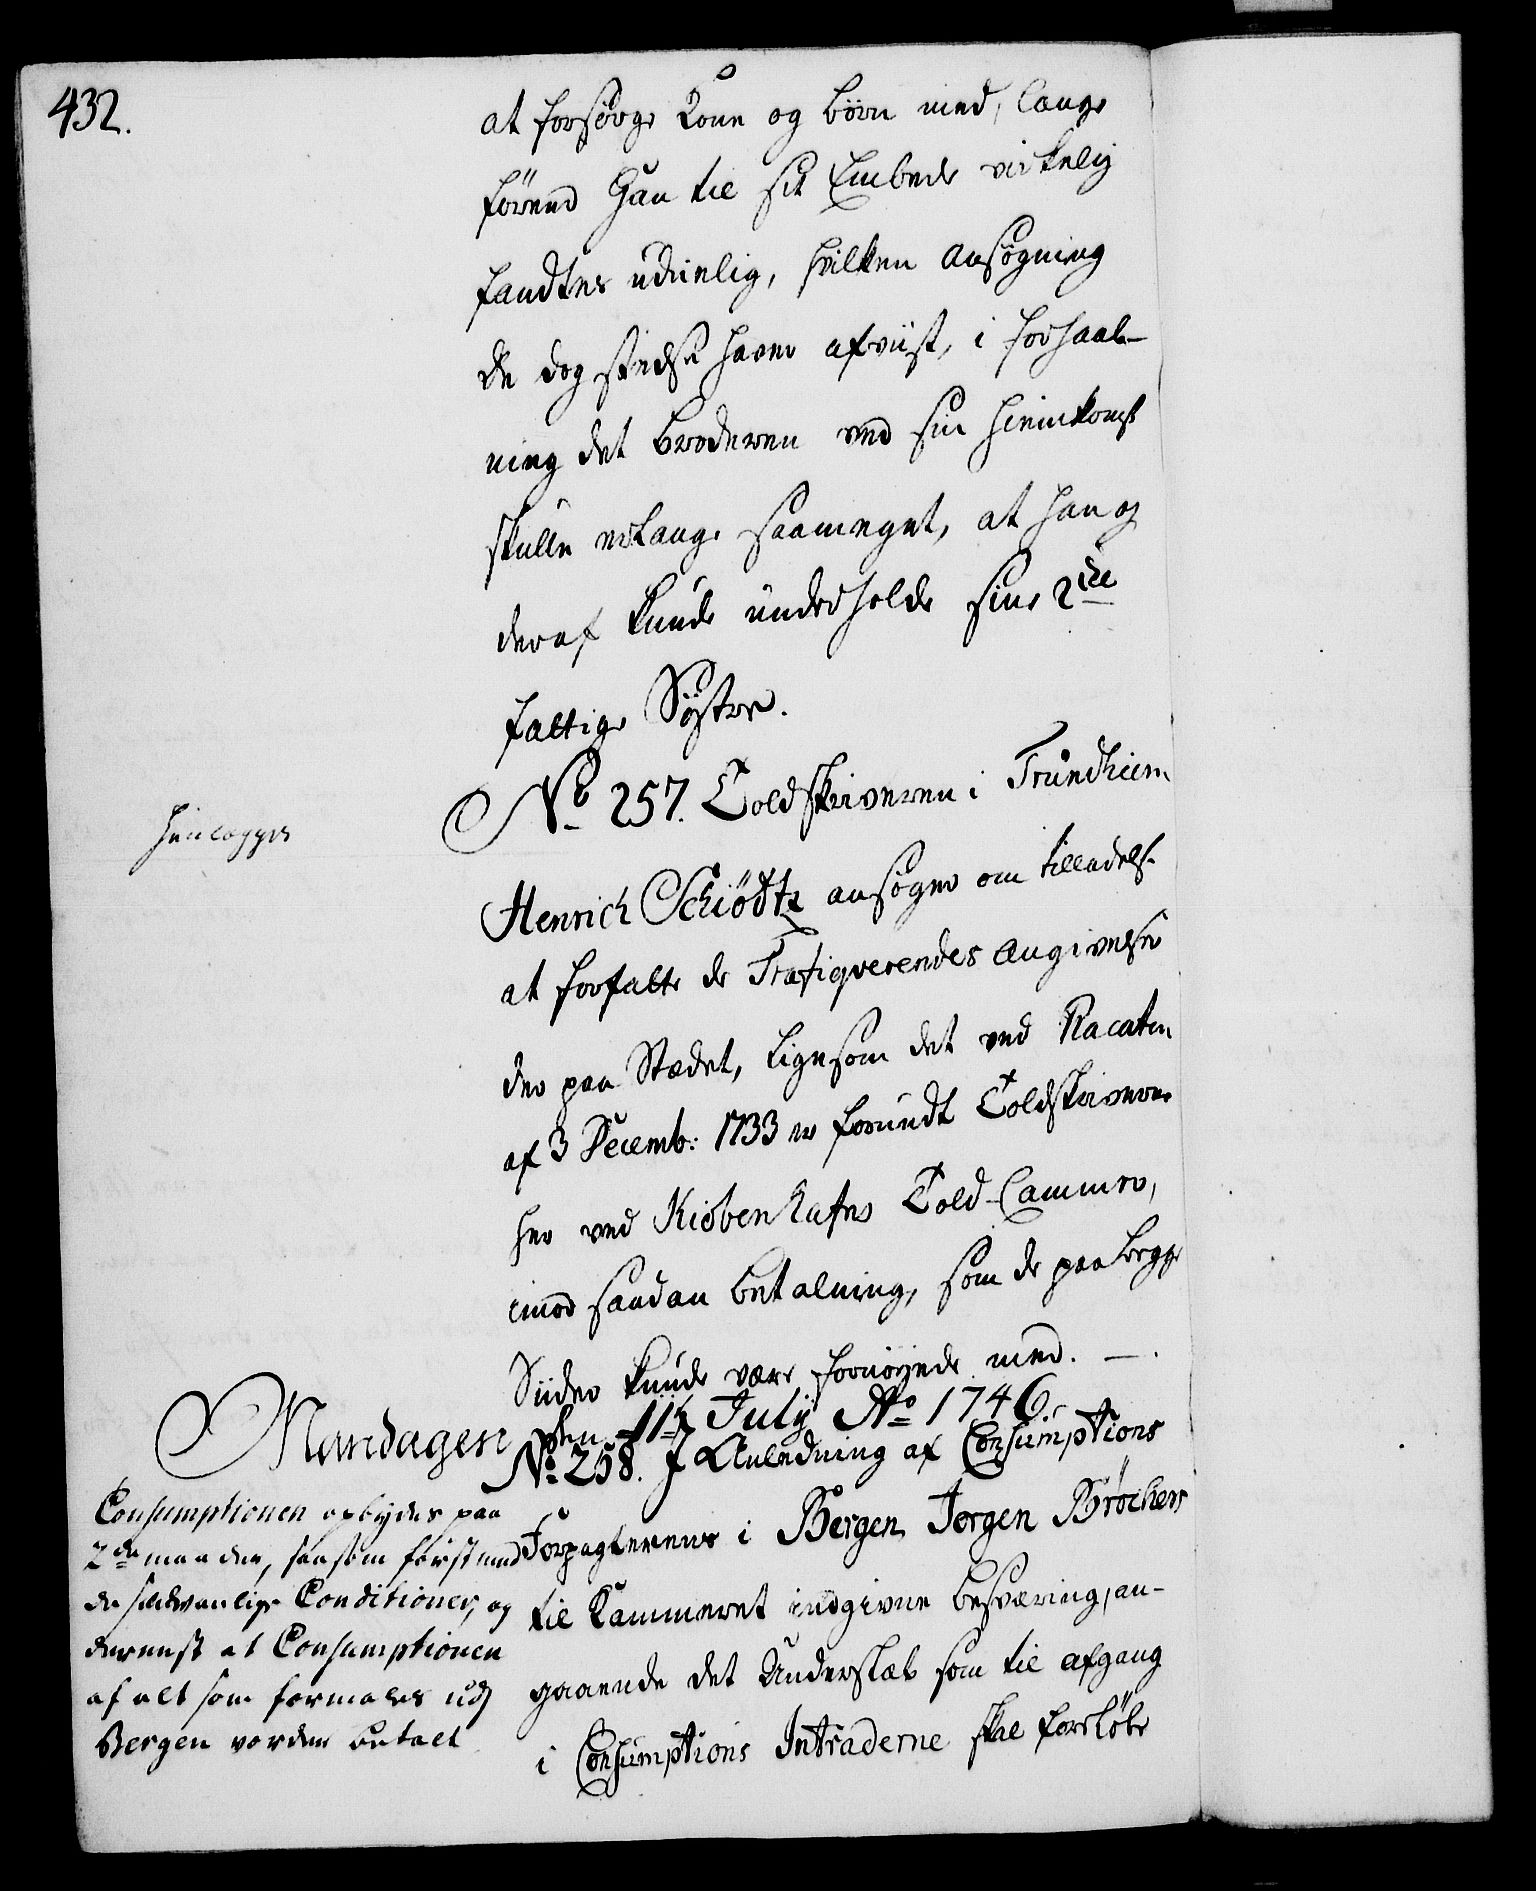 432.
at forsørge Kone og børn med, længe
førend Han til sit Embede virkelig
fandtes udienlig, hvilken ansøgning
de dog stedse haver afviist, i forhaab-
ning det broderen ved sin Hiemkomst
skulle erlange saameget, at han og
deraf kunde underholde sine 2de
fattige Søstre.
No 257. Toldskriveren i Trundhiem
Henlegges
Henrich Schiødtz ansøger om tilladelse
at forfatte de Trafiqverendes Angivelser
der paa Stædet, ligesom det ved Placaten
af 3 Decemb: 1733 er forundt Toldskriverne
her ved Kiøbenhafns Told-Cammer,
imod saadan betalning, som de paa begge
Siider kunde være fornøyede med. —.
Mandagen den 11te July Ao 1746
No 258. I Anledning af Consumptions
Forpagterens i Bergen Jørgen Brøchers
til Kammeret indgivne besværing, an-
gaaende det Underslæb som til afgang
i Consumptions Intraderne skal forløbe
Consumptionen opbydes paa
2de maader, saasom først med
de sædvanlige Conditioner, og
dernæst at Consumptionen
af alt som formales udj
Bergen vorder betalt